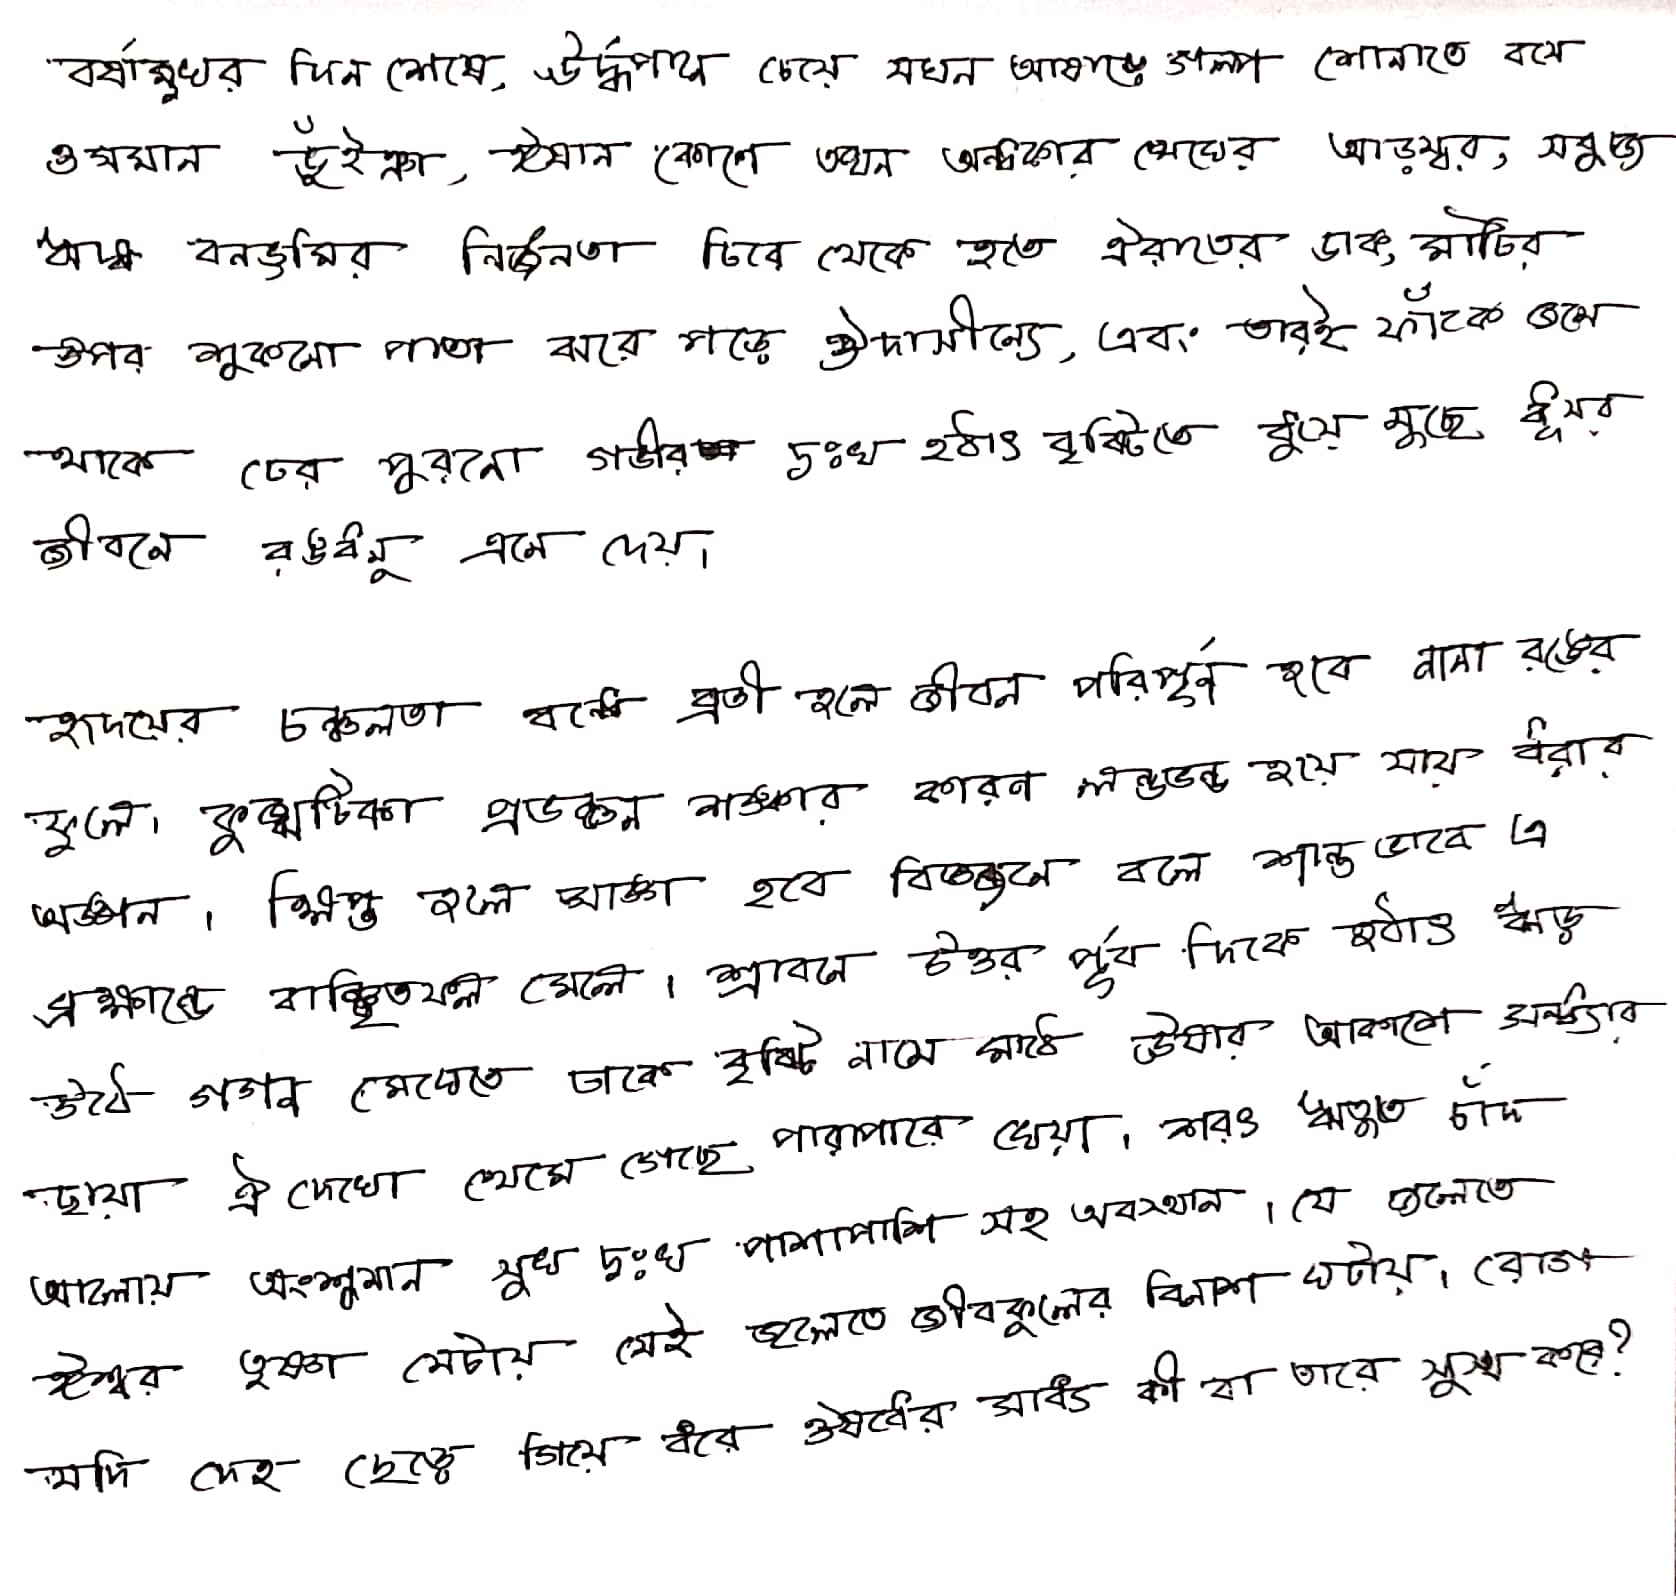 বর্ষামুখর দিন শেষে, ঊর্দ্ধপানে চেয়ে যখন আষাঢ়ে গল্প শোনাতে বসে
ওসমান ভুঁইঞা, ঈষান কোণে তখন অন্ধকার মেঘের আড়ম্বর, সবুজে
ঋদ্ধ বনভূমির নির্জনতা চিরে থেকে হতে ঐরাতের ডাক, মাটির
উপর শুকনো পাতা ঝরে পড়ে ঔদাসীন্যে, এবং তারই ফাঁকে জমে
থাকে ঢের পুরনো গভীর দুঃখ হঠাৎ বৃষ্টিতে ধুয়ে মুছে ধূসর
জীবনে রঙধনু এনে দেয়।
হৃদয়ের চঞ্চলতা বন্ধে ব্রতী হলে জীবন পরিপূর্ন হবে নানা রঙের
ফুলে। কুজ্ঝটিকা প্রভঞ্জন শঙ্কার কারণ লন্ডভন্ড হয়ে যায় ধরার
অঙ্গন। ক্ষিপ্ত হলে সাঙ্গ হবে বিজ্ঞজনে বলে শান্ত ভাবে এ
ব্রহ্মান্ডে বাঞ্ছিতফল মেলে। শ্রাবনে উত্তর পূর্ব দিকে হঠাৎ ঝড়
উঠে গগন মেঘেতে ঢাকে বৃষ্টি নামে মাঠে ঊষার আকাশে সন্ধ্যার
ছায়া ঐ দেখো থেমে গেছে পারাপারে খেয়া। শরৎ ঋতুতে চাঁদ
আলোয় অংশুমান সুখ দুঃখ পাশাপাশি সহ অবস্থান। যে জলেতে
ঈশ্বর তৃষ্ণা মেটায় সেই জলেতে জীবকুলের বিনাশ ঘটায়। রোগ
যদি দেহ ছেড়ে গিয়ে ধরে ঔষধের সাধ্য কী বা তারে সুস্থ করে?